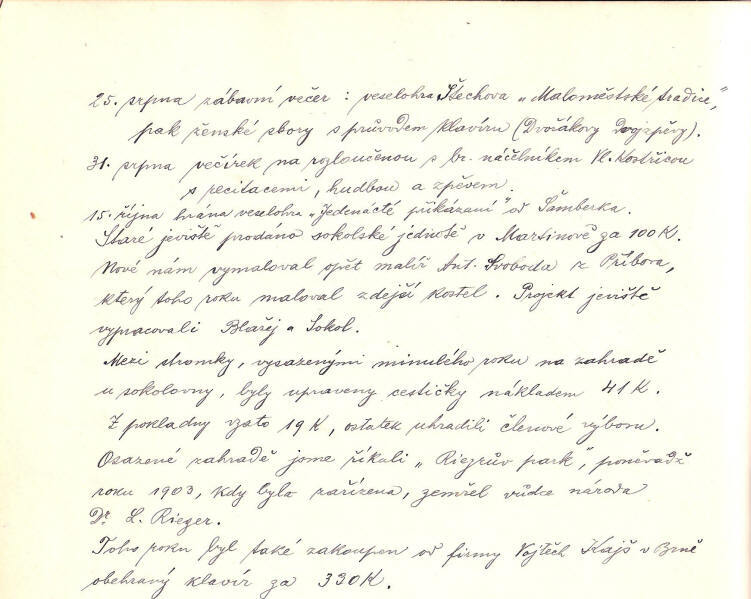 25. srpna zábavní večer : veselohra Štechova „Maloměstské tradice“,
pak ženské sbory s průvodem klavíru (Dvořákovy Dvojzpěvy).
31. srpna večírek na rozloučenou s br. náčelníkem Vl. Kostřicou
s recitacemi, hudbou a zpěvem.
15. října hrána veselohra „Jedenácté přikázání“ od Šamberka.
Staré jeviště prodáno sokolské jednotě v Martinově za 100 K.
Nové nám vymaloval opět malíř Ant. Svoboda z Příbora,
který toho roku maloval zdejší kostel. Projekt jeviště
vypracovali Blažej a Sokol.
Mezi stromky, vysazenými minulého roku na zahradě
u sokolovny, byly upraveny cestičky nákladem 41 K.
Z pokladny vzato 19 K, ostatek uhradili členové výboru.
Osazené zahradě jsme říkali „Riegrův park“, poněvadž
roku 1903, kdy byla zařízena, zemřel vůdce národa
Dr. L. Rieger.
Toho roku byl také zakoupen od firmy Vojtěch Kajš v Brně
obehraný klavír za 330 K.